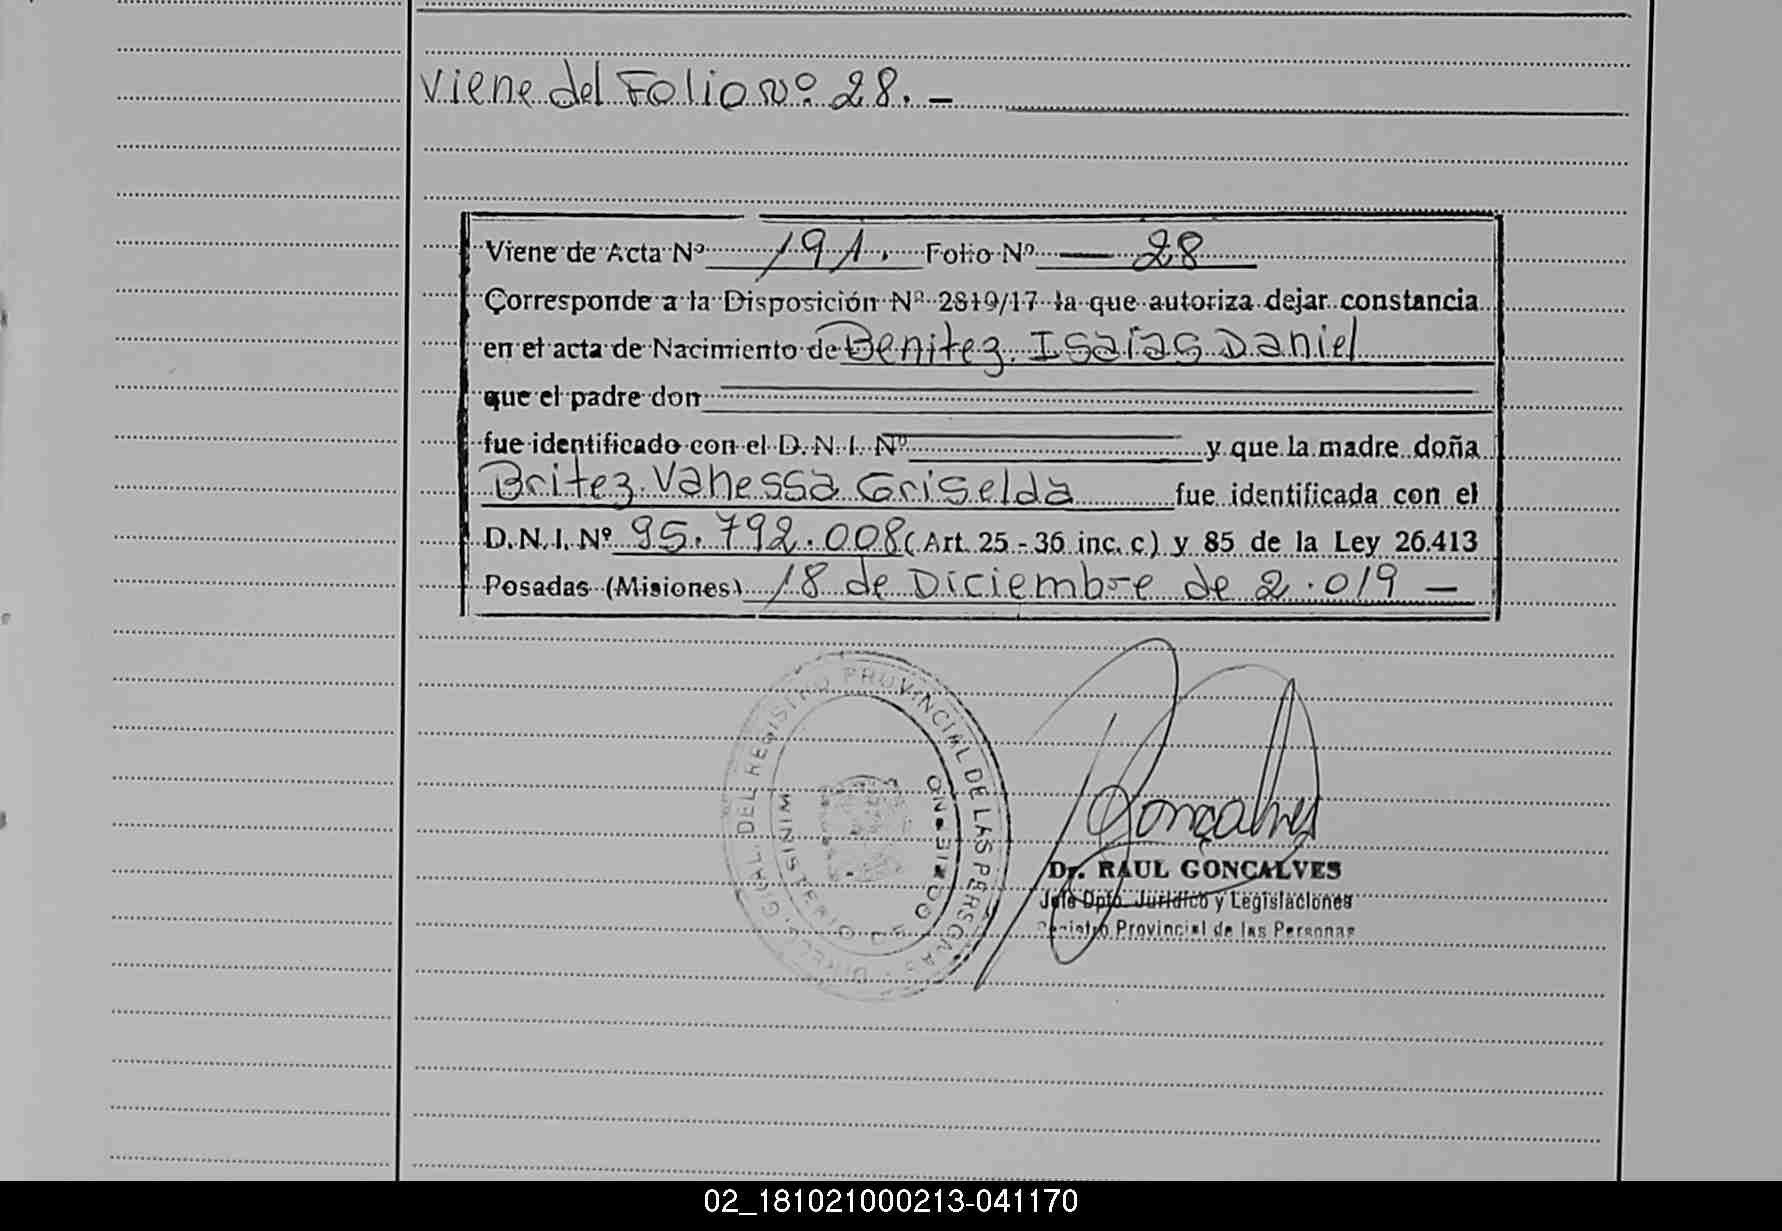 Viene del Folio Nº 28. –
Viene de Acta Nº 191. Folio Nº — 28
Corresponde a la Disposición Nº 2819/17 la que autoriza dejar constancia
en el acta de Nacimiento de Benitez Isaías Daniel
que el padre don
fue identificado con el D. N. I. Nº y que la madre doña
Britez Vanessa Griselda fue identificada con el
D. N. I. Nº 95.792.008 (Art. 25 - 36 inc. c) y 85 de la Ley 26.413
Posadas (Misiones) 18 de Diciembre de 2.019 —
DEL REGISTRO PROVINCIAL DE LAS PERSONAS
MINISTERIO DE GOBIERNO
Gonçalves
Dr. RAUL GONÇALVES
Jefe Dpto. Jurídico y Legislaciones
Registro Provincial de las Personas
02_181021000213-041170